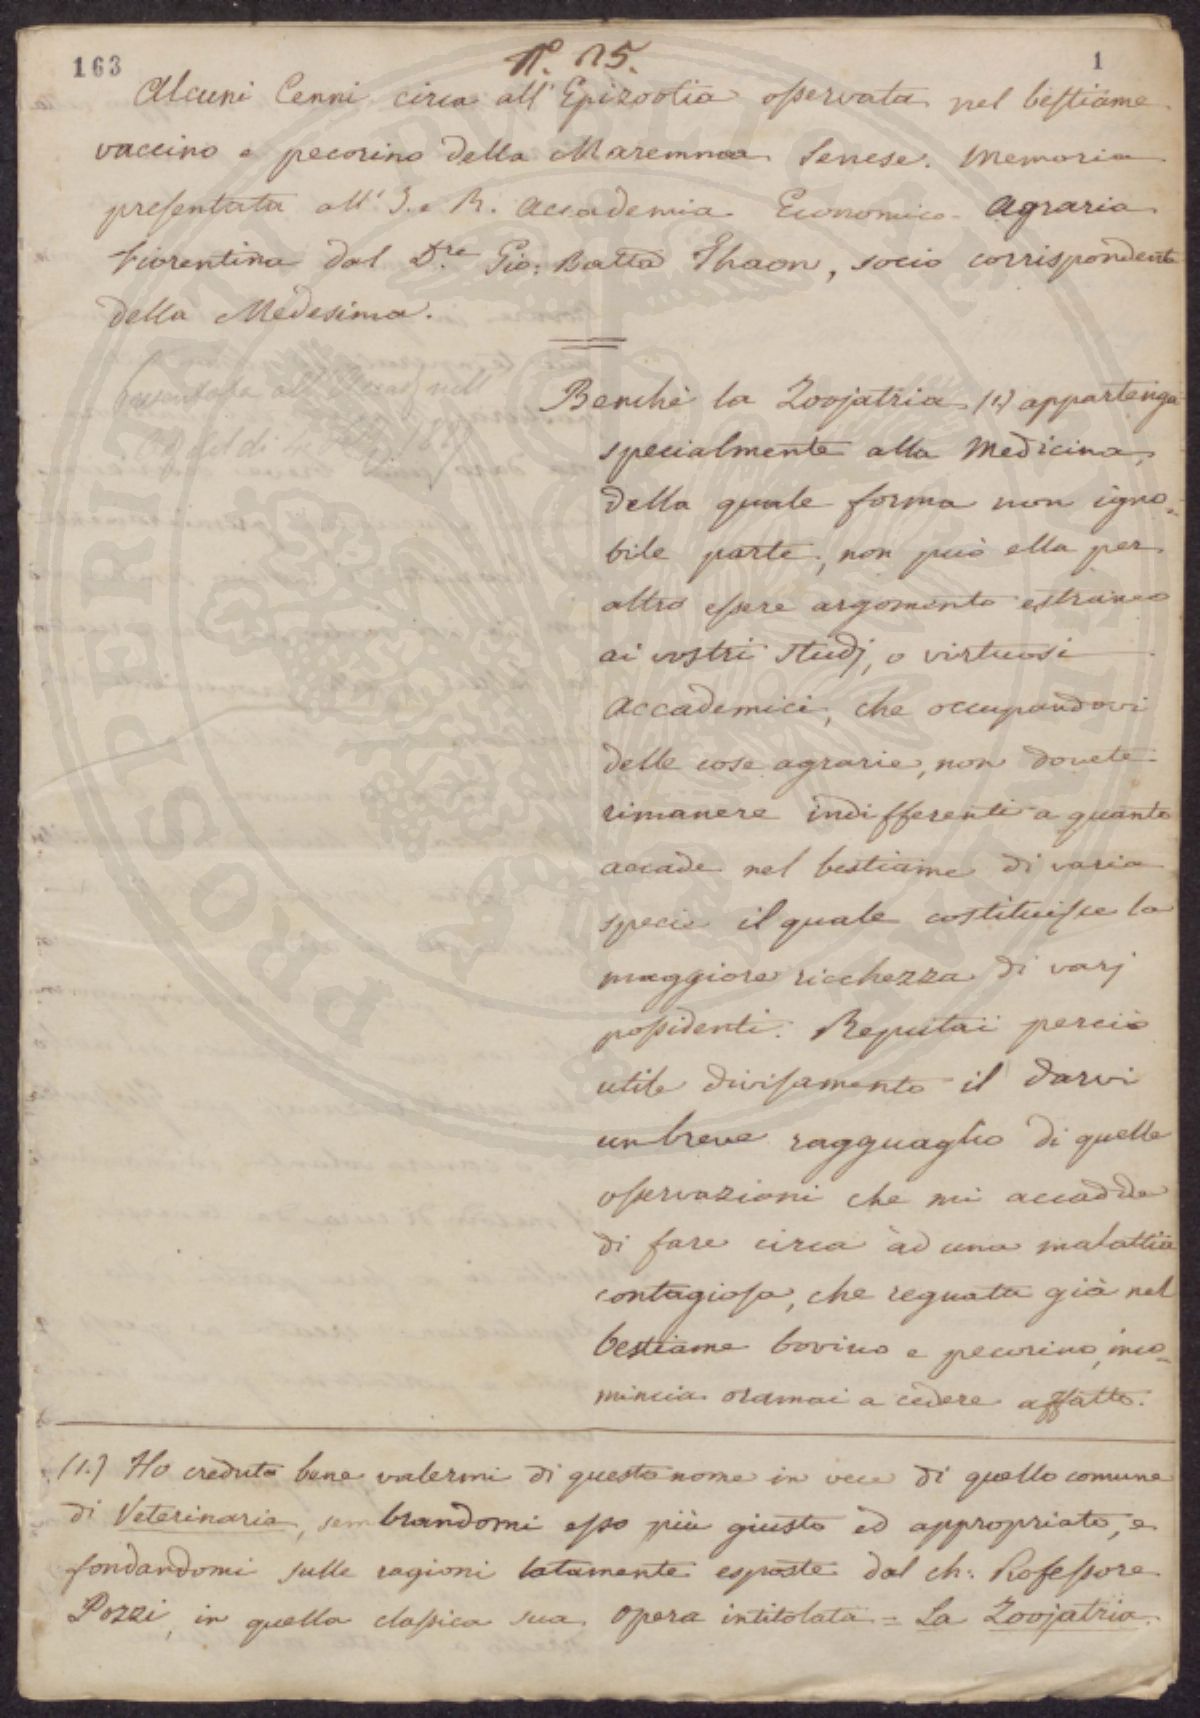 163
N.° 25.
1
Alcuni Cenni circa all' Epizootia osservata nel bestiame
vaccino e pecorino della Maremma Senese. Memoria
presentata all' I. e R. Accademia Economico-Agraria
Fiorentina dal D.re Gio: Batta Thaon, socio corrispondente
della Medesima.
Presentata all'
del dì
Benchè la Zoojatria (1.) appartenga
specialmente alla Medicina,
della quale forma non igno-
bile parte, non può ella per
altro essere argomento estraneo
ai vostri studj, o virtuosi
Accademici, che occupandovi
delle cose agrarie, non dovete
rimanere indifferenti a quanto
accade nel bestiame di varia
specie il quale costituisce la
maggiore ricchezza di varj
possidenti. Reputai perciò
utile divisamento il darvi
un breve ragguaglio di quelle
osservazioni che mi accadde
di fare circa ad una malattia
contagiosa, che regnata già nel
bestiame bovino e pecorino, inco-
mincia oramai a cedere affatto.
(1.) Ho creduto bene valermi di questo nome in vece di quello comune
di Veterinaria, sembrandomi esso più giusto ed appropriato, e
fondandomi sulle ragioni latamente esposte dal ch: Professore
Pozzi, in quella classica sua opera intitolata = La Zoojatria.
PROSPERITATI PUBLICAE AUGENDAE